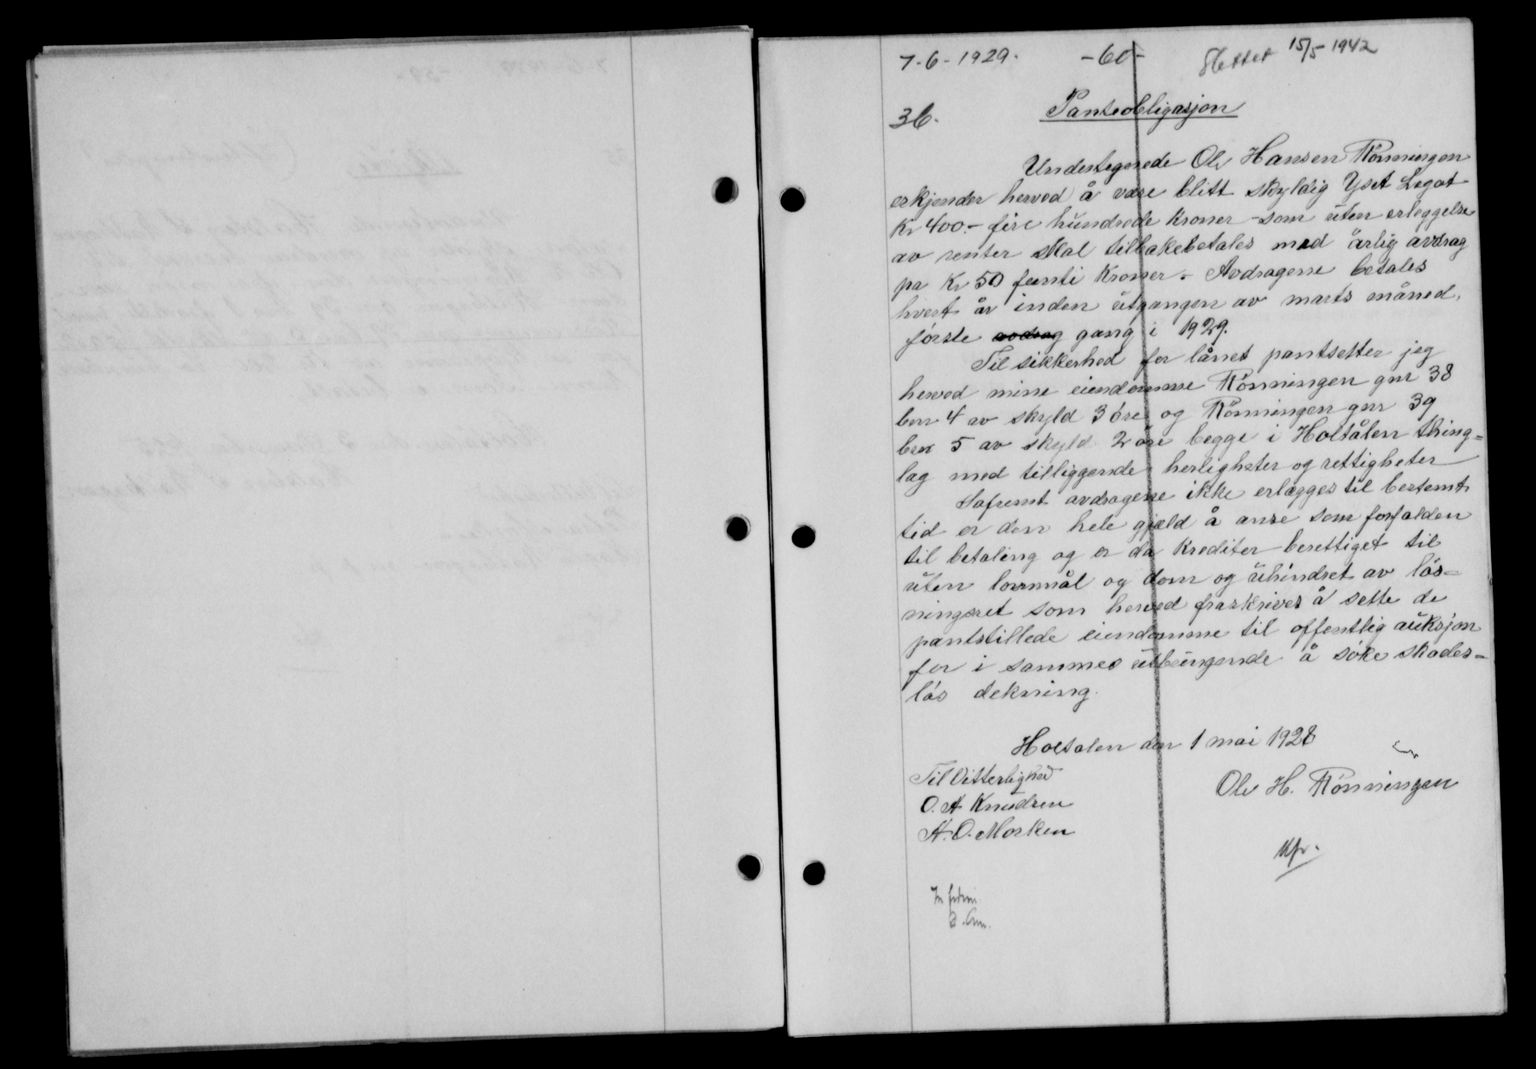 7-6-1929. -60- Slettet 15/5-1942
36. Panteobligasjon
Undertegnede Ole Hansen Rönningen
erkjender herved å være blitt skyldig Yset Legat
Kr 400.- fire hundrede Kroner - som uten erleggelse
av renter skal tilbakebetales med årlig avdrag
pa Kr 50 femti Kroner. - Avdragene betales
hvert år inden utgangen av marts måned,
förste avdrag gang i 1929.
Til sikkerhed for lånet pantsetter jeg
herved mine eiendomme Rönningen gnr 38
bnr 4 av skyld 3 öre og Rönningen gnr 39
bnr 5 av skyld 2 öre begge i Holtålen thing=
lag med tilliggende herligheter og rettigheter
Safremt avdragene ikke erlægges til bestemt
tid er den hele gjæld å anse som forfalden
til betaling og er da Kreditor berettiget til
uten lovmål og dom og uhindret av lös=
ningsret som herved fraskrives å sette de
pantstillede eiendomme til offentlig auksjon
for i sammes utbringende å söke skades=
lös dekning.
Holtalen den 1 mai 1928
Til Vitterlighed
Ole H. Rönningen
O. A Knudsen
A. O. Morken